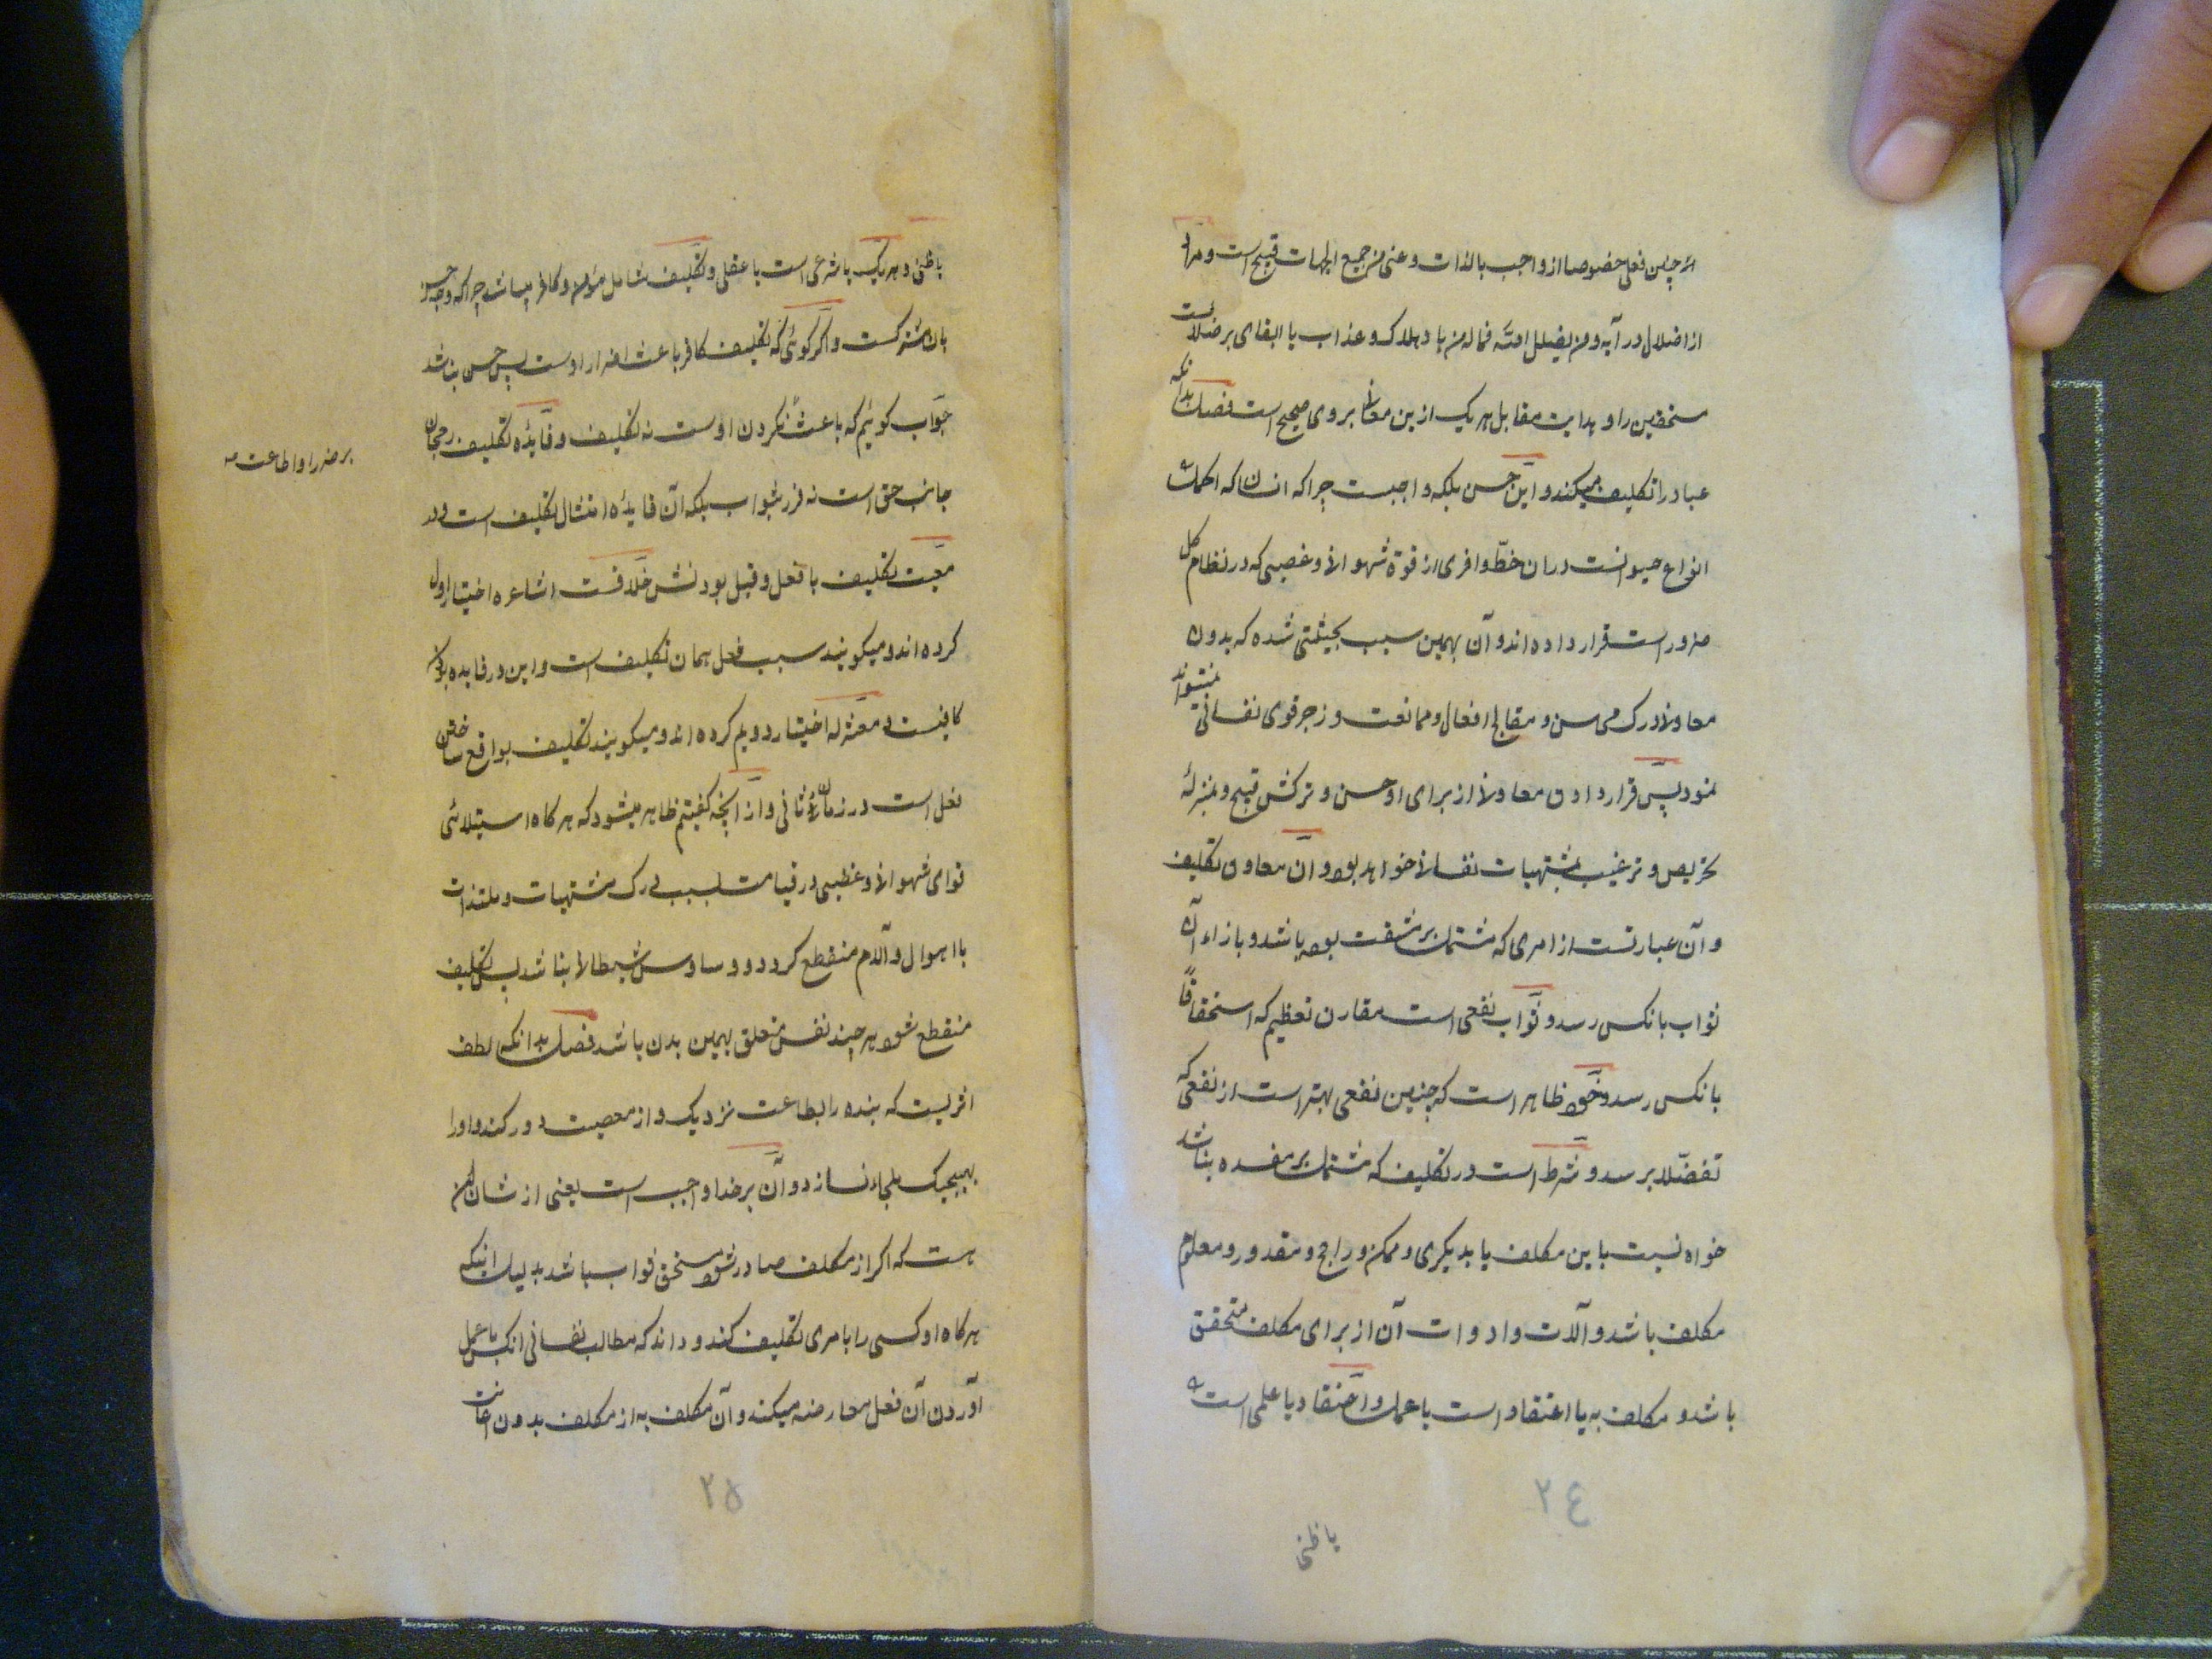 از چنین فعلی خصوصا از واجب بالذات و غنی من جمیع الجهات قبیح است و مراد
از اضلال در آیه و من یضلل الله فما له من هاد هلاک و عذاب یا ابقای بر ضلالت
مستحقین را و هدایت مقابل هر یک ازین معانی بروی صحیح است فصل بدانکه
عباد را تکلیف میکند و این حسن بلکه واجبست چرا که انسان که اکمل
انواع حیوانست دران حظ وافری از قوة شهوانی و غضبی که در نظام کل
ضرور است قرار داده اند و آن بهمین سبب بحیثیتی شده که بدون
معاونی درک محاسن و مقابح افعال و ممانعت و زجر قوی نفسانی نمیتواند
نمود پس قرار دادن معاونی از برای او حسن و ترکش قبیح و بمنزلهٔ
تحریص و ترغیب بمشتهیات نفسانی خواهد بود و آن معاون تکلیف
و آن عبارتست از امری که مشتمل بر مشقت بوده باشد و بازاء آن
ثواب بانکس رسد و ثواب نفعی است مقارن تعظیم که استحقاقاً
بانکس رسد و خود ظاهر است که چنین نفعی بهتر است از نفعی که
تفضّلا برسد و شرط است در تکلیف که مشتمل بر مفسده نباشد
خواه نسبت باین مکلف یا بدیگری و ممکن و راجح و مقدور و معلوم
مکلف باشد و آلات و ادوات آن از برای مکلف متحقق
باشد و مکلف به یا اعتقاد است یا عمل و اعتقاد یا علمی است
۲٤
یا ظنی
یا ظنی و هر یک یا شرعی است یا عقلی و تکلیف شامل مؤمن و کافر میباشد چرا که وجه حسن
بان مشترکست و اگر گوئی که تکلیف کافر باعث اضرار اوست پس حسن نباشد
جواب گوئیم که باعث نکردن اوست نه تکلیف و فایدهٔ تکلیف رجحان
بر ضرر او اطاعت
جانب حق است نه فرر بثواب بلکه آن فایدهٔ امتثال تکلیف است و در
معیت تکلیف با فعل و قبل بودنش خلافست اشاعره اختیار اول
کرده اند و میگویند سبب فعل همان تکلیف است و این در فایده بودن
کافیست و معتزله اختیار دویم کرده اند و میگویند تکلیف بواقع ساختن
فعل است در زمان ثانی و از آنچه گفتیم ظاهر میشود که هر گاه استیلائی
قوای شهوانی و غضبی در قیامت بسبب درک مشتهیات و ملتذات
با اهوال و آلام منقطع گردد و وساوس شیطانی نباشد پس تکلیف
منقطع شود هر چند نفس متعلق بهمین بدن باشد فصل بدانکه لطف
اثریست که بنده را بطاعت نزدیک و از معصیت دور کند و او را
بهیچیک ملجاء نسازد و آن بر خدا واجب است یعنی از شان
هست که اگر از مکلف صادر شود مستحق ثواب باشد بدلیل اینکه
هر گاه او کسی را بامری تکلیف کند و داند که مطالب نفسانی انکس با عمل
آوردن آن فعل معارضه میکند و آن مکلف به از مکلف بدون اعانت
۲۵